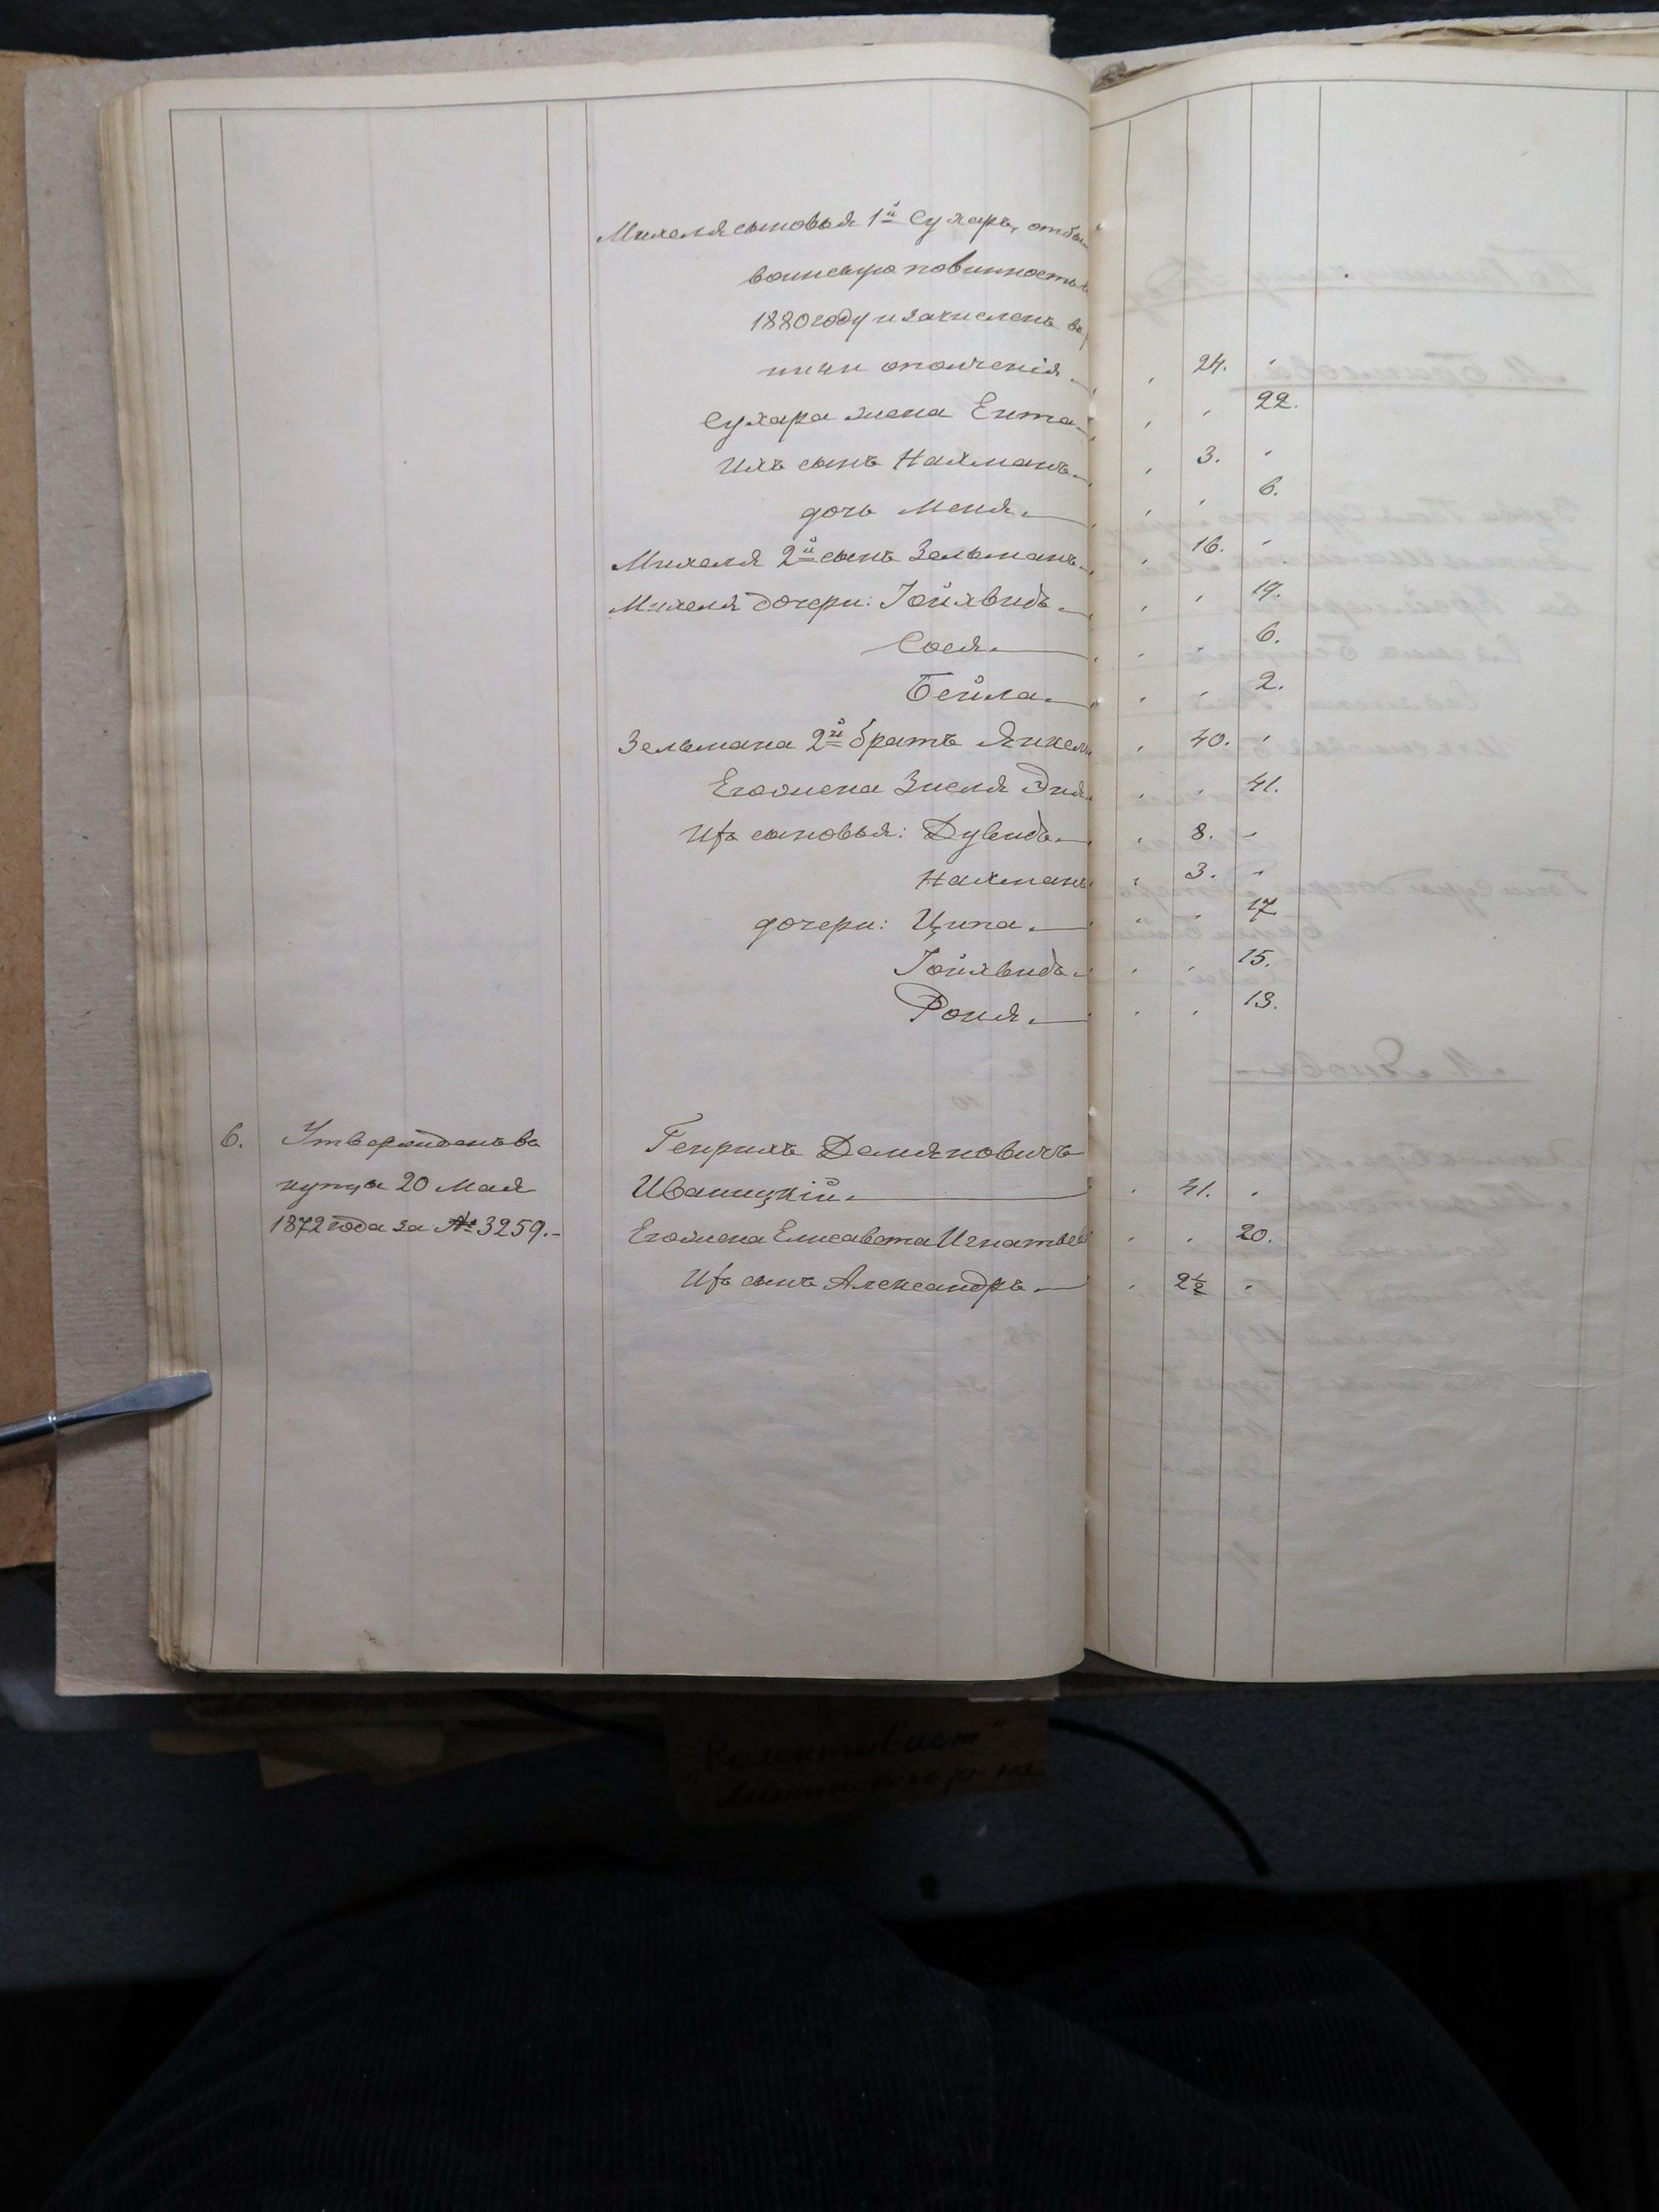 Михеля сыновья 1й Сухаръ, отбы
воинскую повинность въ
1880 году и зачисленъ въ
ники ополченія 24. "
Сухара жена Ента 22.
Ихъ сынъ Нахманъ 3. "
дочь Меня 6.
Михеля 2й сынъ Зельманъ 16. "
Михеля дочери: Іойхвидъ 19.
Сося 6.
Бейла 2.
Зельмана 2й братъ Янкель 40. "
Его жена Зисля Эдя 41.
Ихъ сыновья: Дувидъ 8. "
Нахманъ 3. "
дочери: Ципа 17
Іойхвидъ 15.
Роня 13.
6. Утвержденъ въ Генрихъ Демяновичъ
купцы 20 Мая Иваницкій. 41. "
1872 года за № 3259.- Его жена Елисавета Игнатьев 20.
Ихъ сынъ Александръ 2½ "
"Колективист"